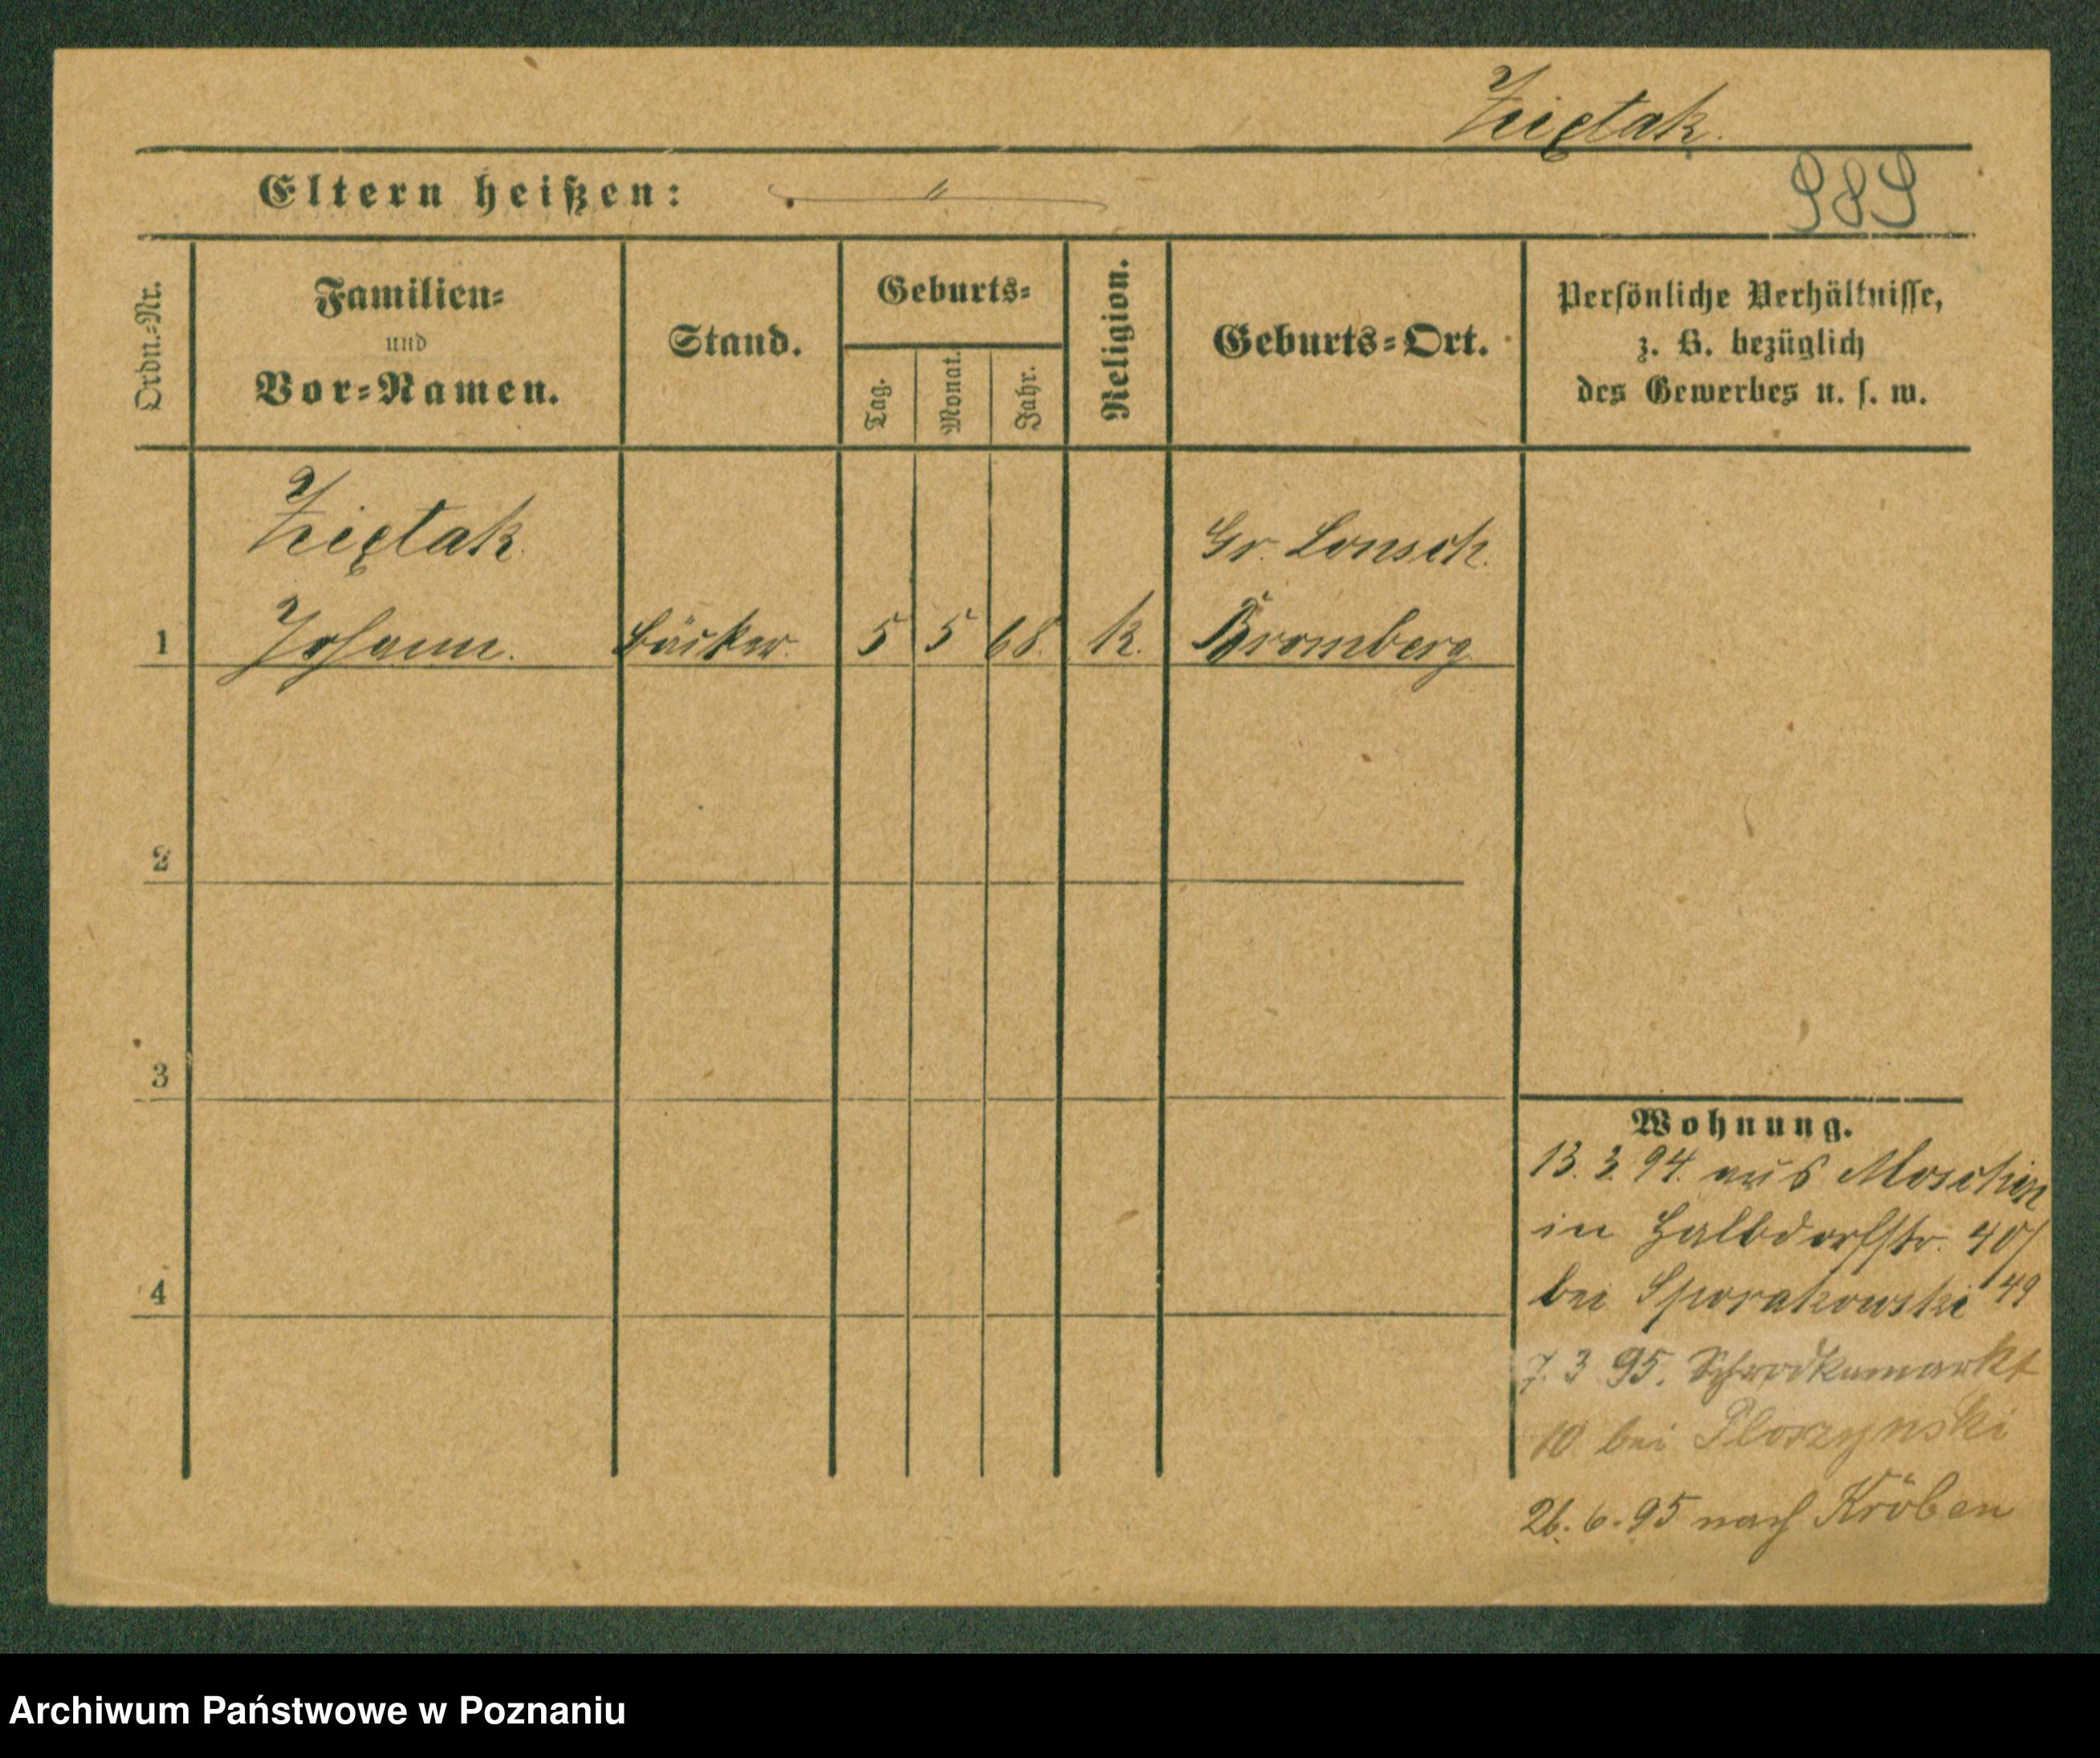 Ziętak.
Eltern heißen: "
989
Ordn.=Nr.
Familien=
und
Vor=Namen.
Stand.
Geburts=
Tag.
Monat.
Jahr.
Religion.
Geburts=Ort.
Persönliche Verhältnisse,
z. B. bezüglich
des Gewerbes u. s. w.
Ziętak
Gr. Lonsch.
1 Johann. Bäcker. 5 5 68. k. Bromberg
2
3
4
Wohnung.
13. 3. 94. aus Moschin
in Halbdorfstr. 40/
bei Sporakowski 49
7. 3 95. Schrodkamarkt
10 bei Ploszynski
26. 6. 95 nach Kröben
Archiwum Państwowe w Poznaniu